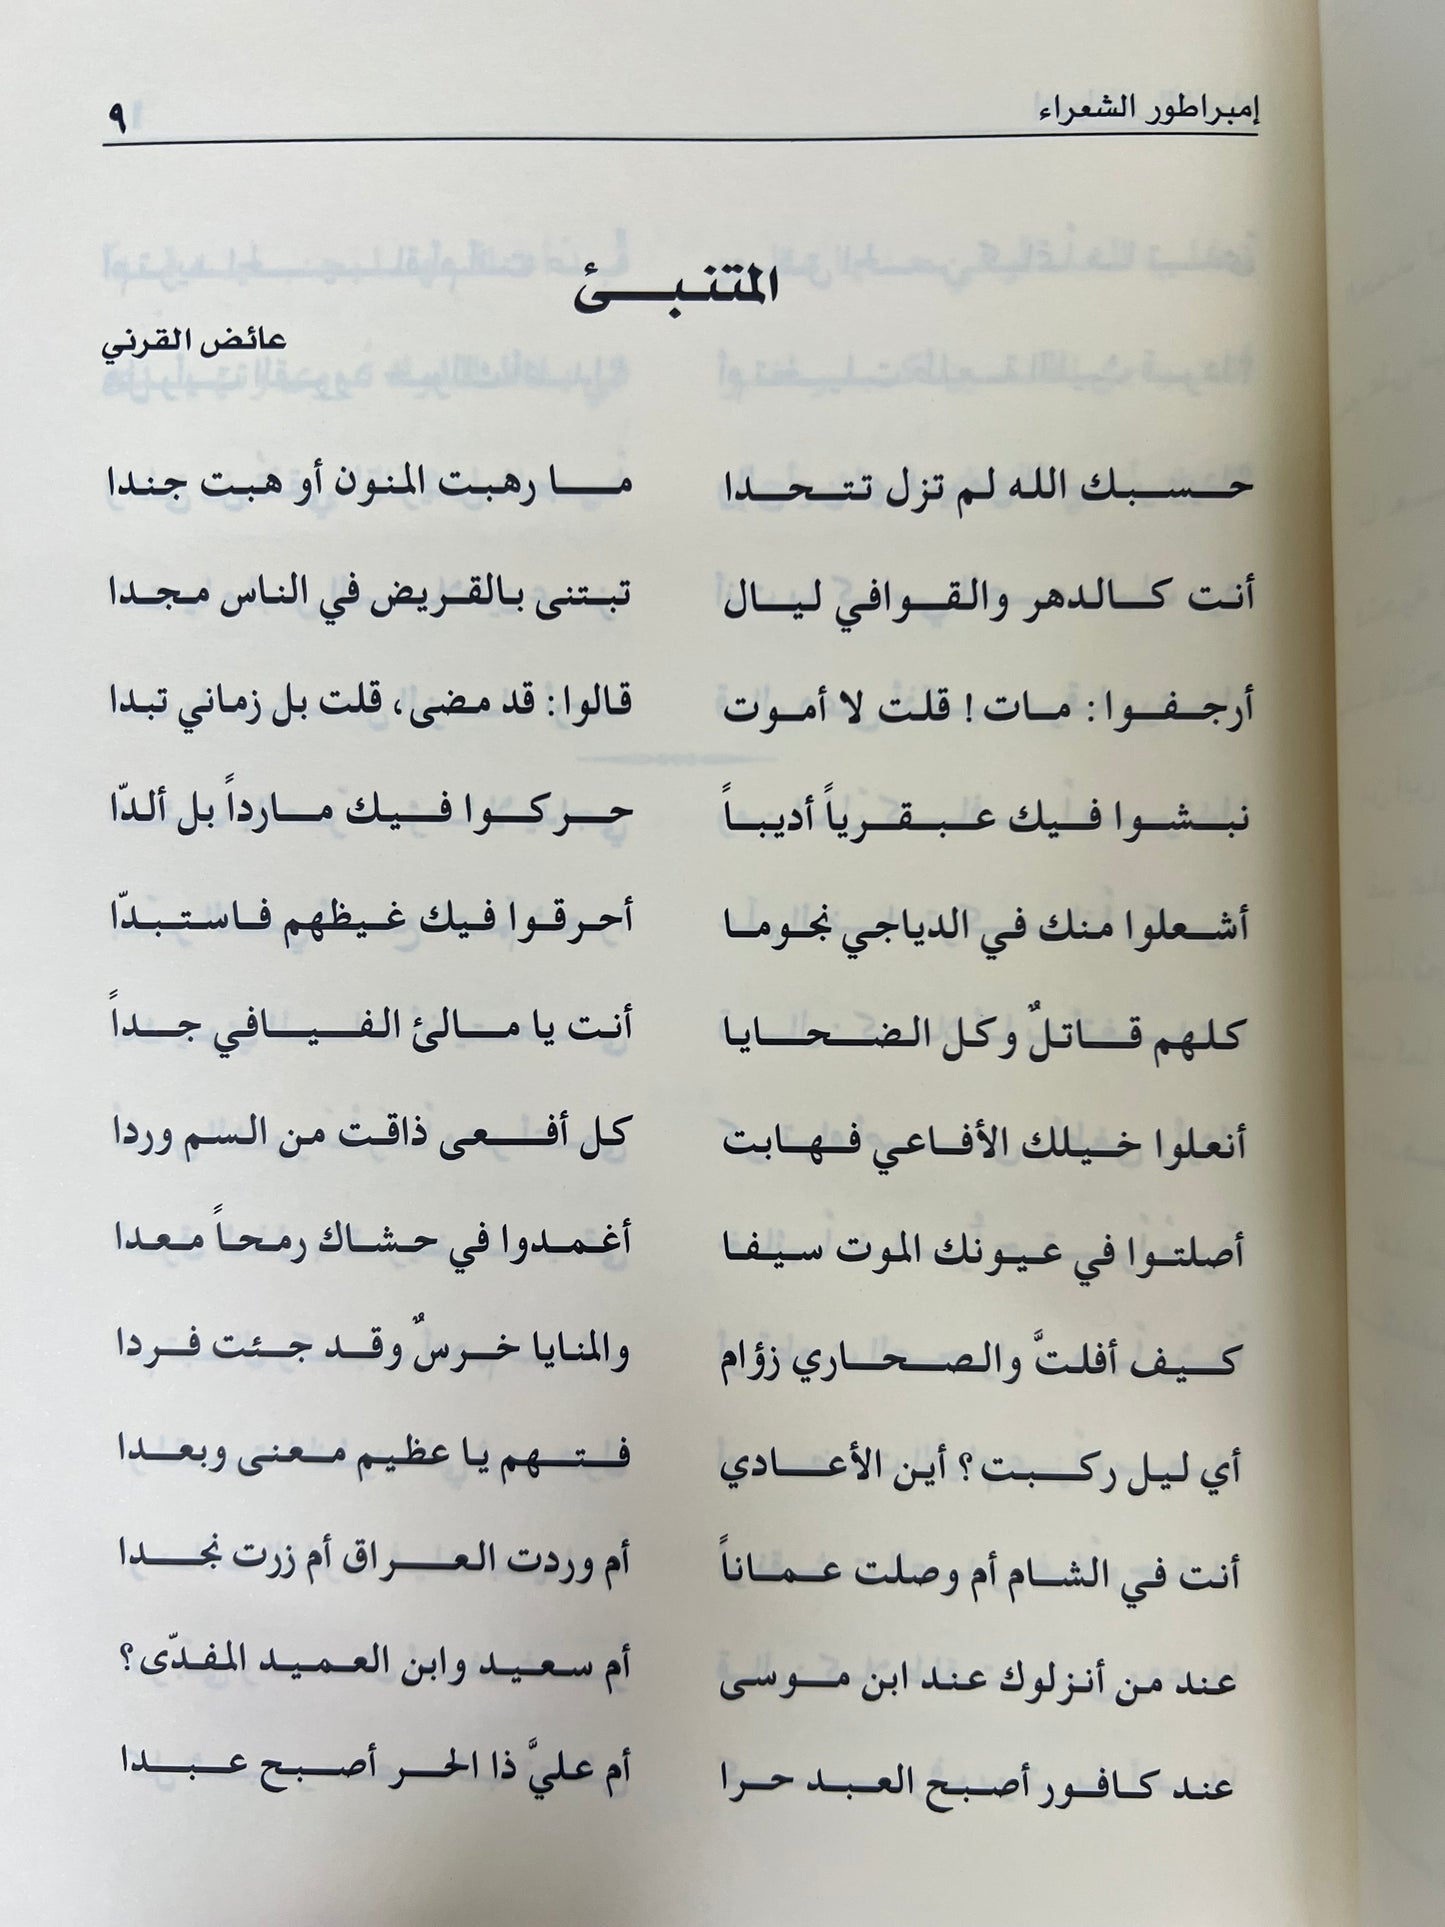 إمبراطور الشعراء ٩
المتنبئ
عائض القرني
حسبك الله لم تزل تتحدا ما رهبت المنون أو هبت جندا
أنت كالدهر والقوافي ليال تبتنى بالقريض في الناس مجدا
أرجفوا: مات! قلت لا أموت قالوا: قد مضى، قلت بل زماني تبدا
نبشوا فيك عبقرياً أديباً حركوا فيك مارداً بل ألدّا
أشعلوا منك في الدياجي نجوما أحرقوا فيك غيظهم فاستبدّا
كلهم قاتلٌ وكل الضحايا أنت يا مالئ الفيافي جداً
أنعلوا خيلك الأفاعي فهابت كل أفعى ذاقت من السم وردا
أصلتوا في عيونك الموت سيفا أغمدوا في حشاك رمحاً معدا
كيف أفلتَّ والصحاري زؤام والمنايا خرسٌ وقد جئت فردا
أي ليل ركبت؟ أين الأعادي فتهم يا عظيم معنى وبعدا
أنت في الشام أم وصلت عماناً أم وردت العراق أم زرت نجدا
عند من أنزلوك عند ابن موسى أم سعيد وابن العميد المفدّى؟
عند كافور أصبح العبد حرا أم عليَّ ذا الحر أصبح عبدا